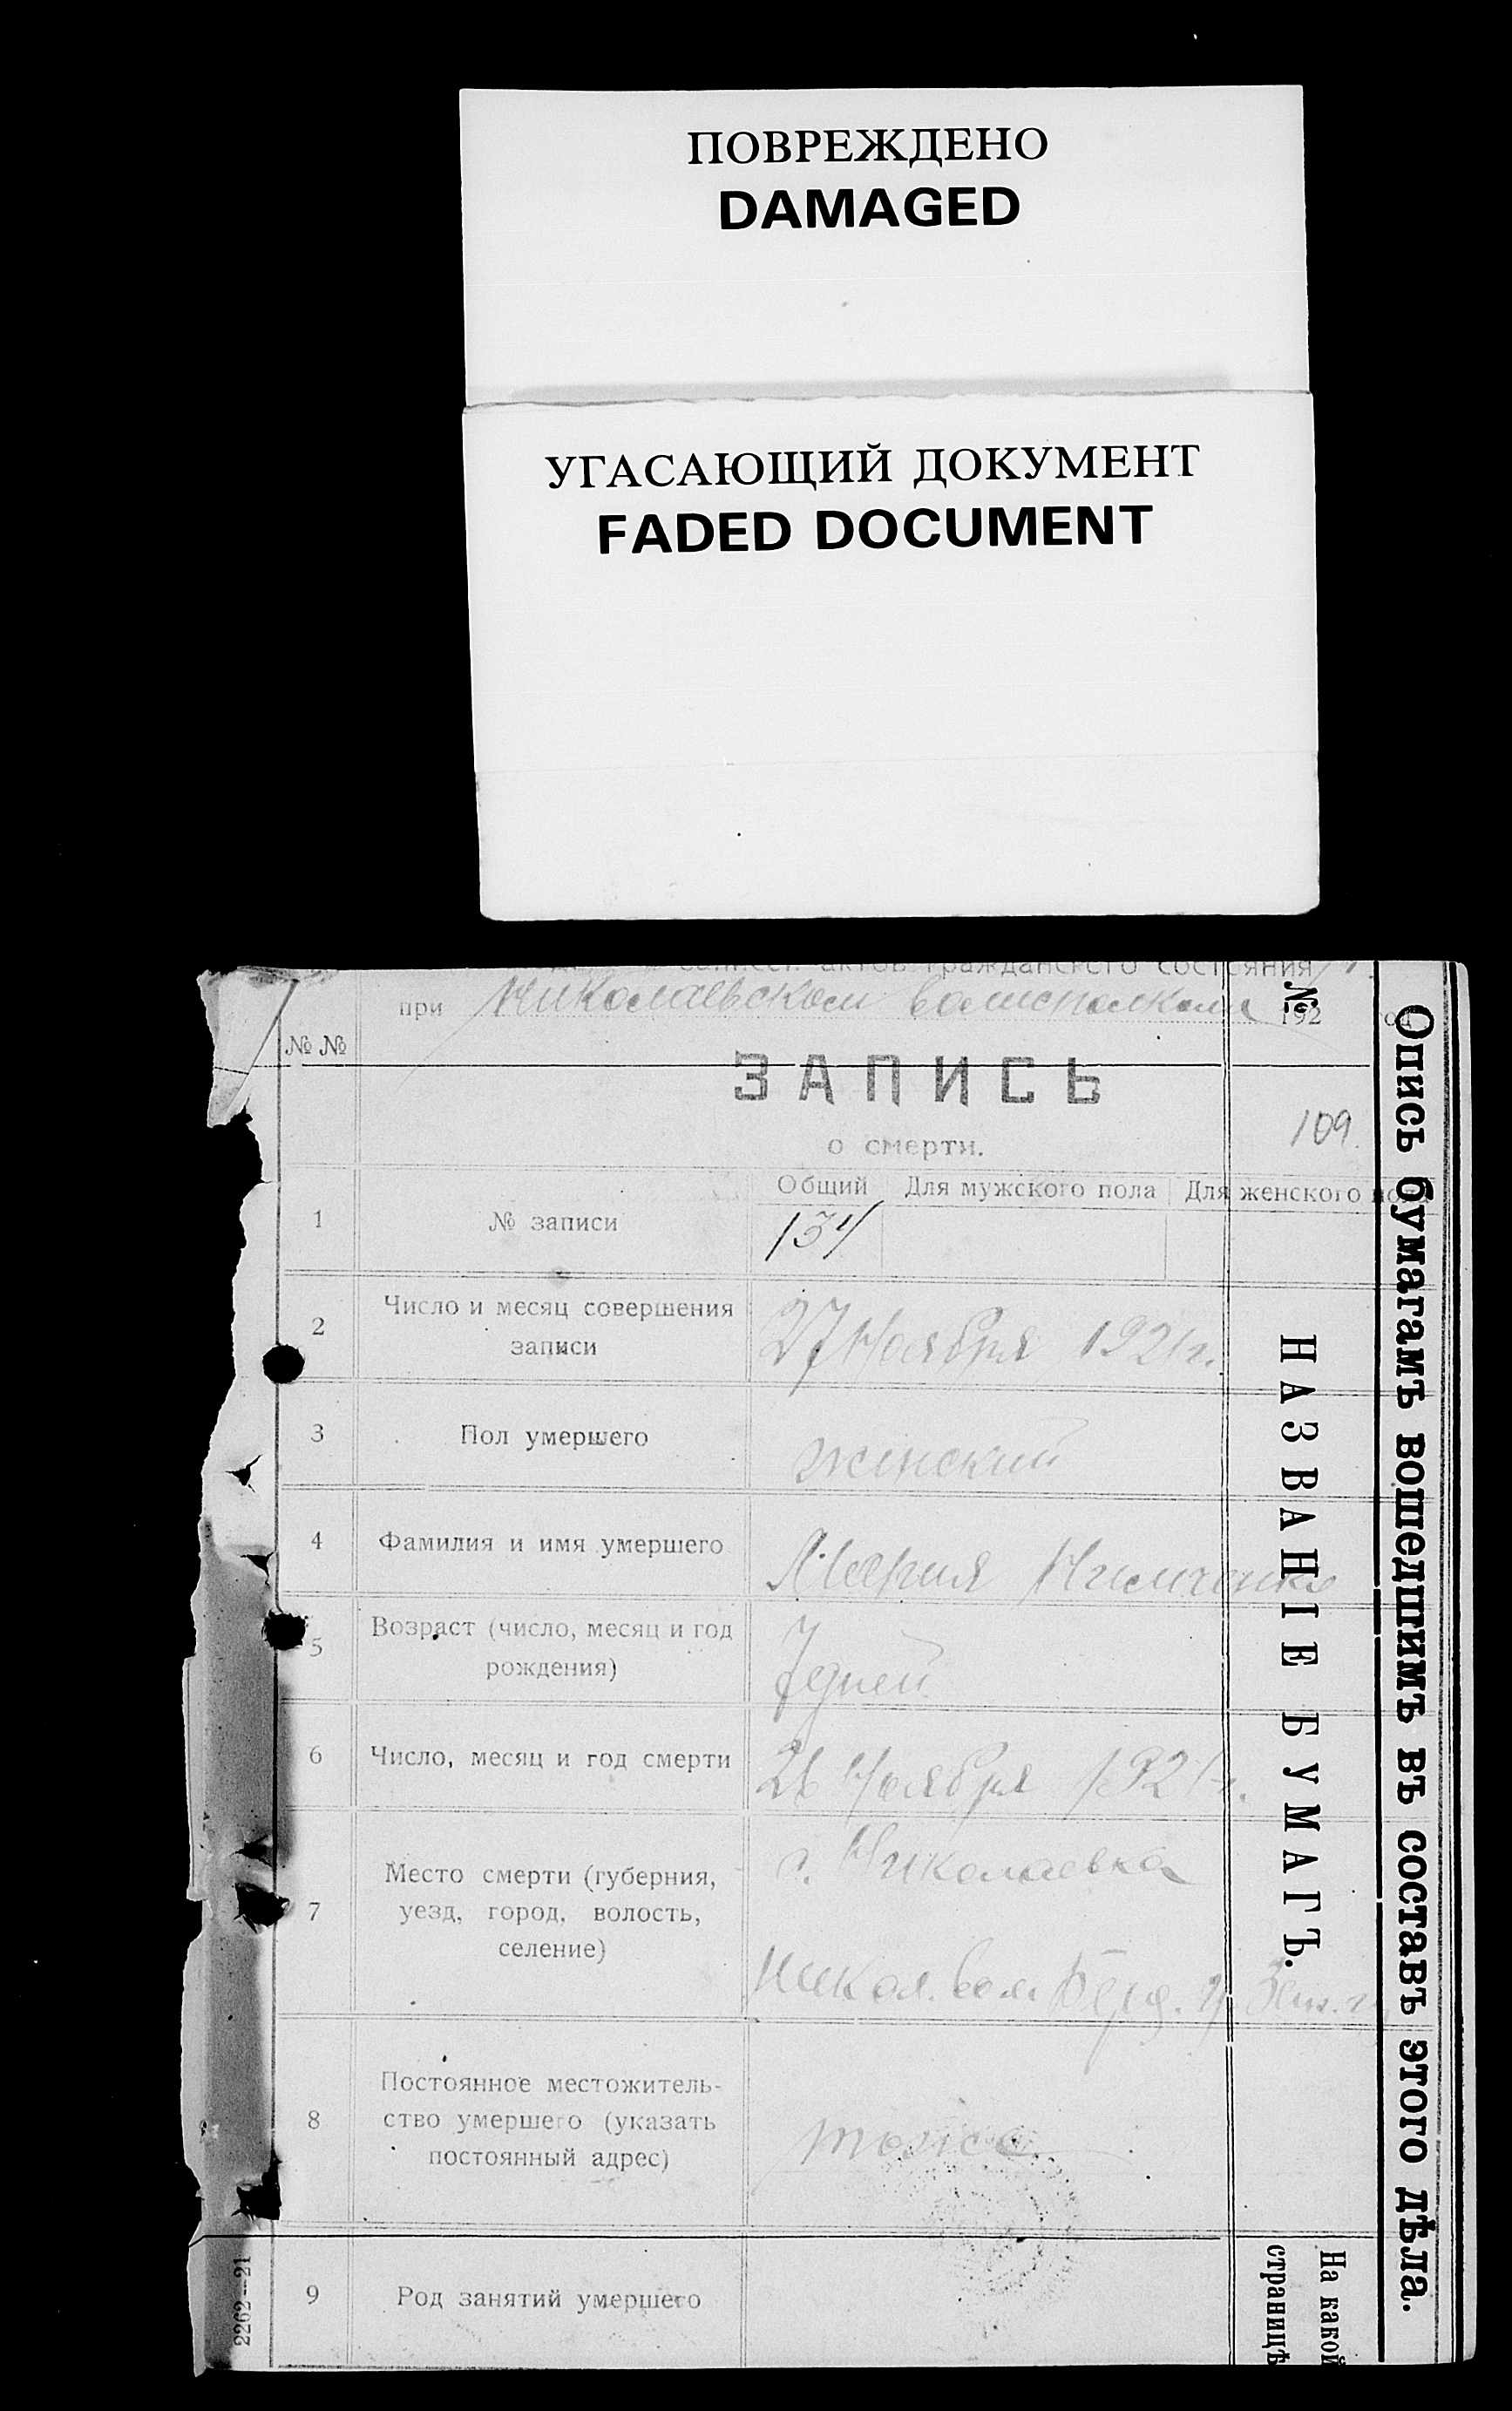 ПОВРЕЖДЕНО
DAMAGED
УГАСАЮЩИЙ ДОКУМЕНТ
FADED DOCUMENT
актов гражданского состояния
при Николаевском волисполкоме 192
№ №
ЗАПИСЬ
о смерти.
109.
Общий Для мужского пола Для женского пола
1 № записи 134
2 Число и месяц совершения
записи
27 Ноября 1921 г.
3 Пол умершего
женский
4 Фамилия и имя умершего
Мария
5 Возраст (число, месяц и год
рождения)
7 дней
6 Число, месяц и год смерти
26 Ноября 1921 г.
7 Место смерти (губерния,
уезд, город, волость,
селение)
с. Николаевка
Никол. вол. Берд. у. Зап. г.
8 Постоянное местожитель-
ство умершего (указать
постоянный адрес)
тоже
9 Род занятий умершего
2262—21
№
НАЗВАНІЕ БУМАГЪ.
На какой
страницѣ
Опись бумагамъ вошедшимъ въ составъ этого дѣла.